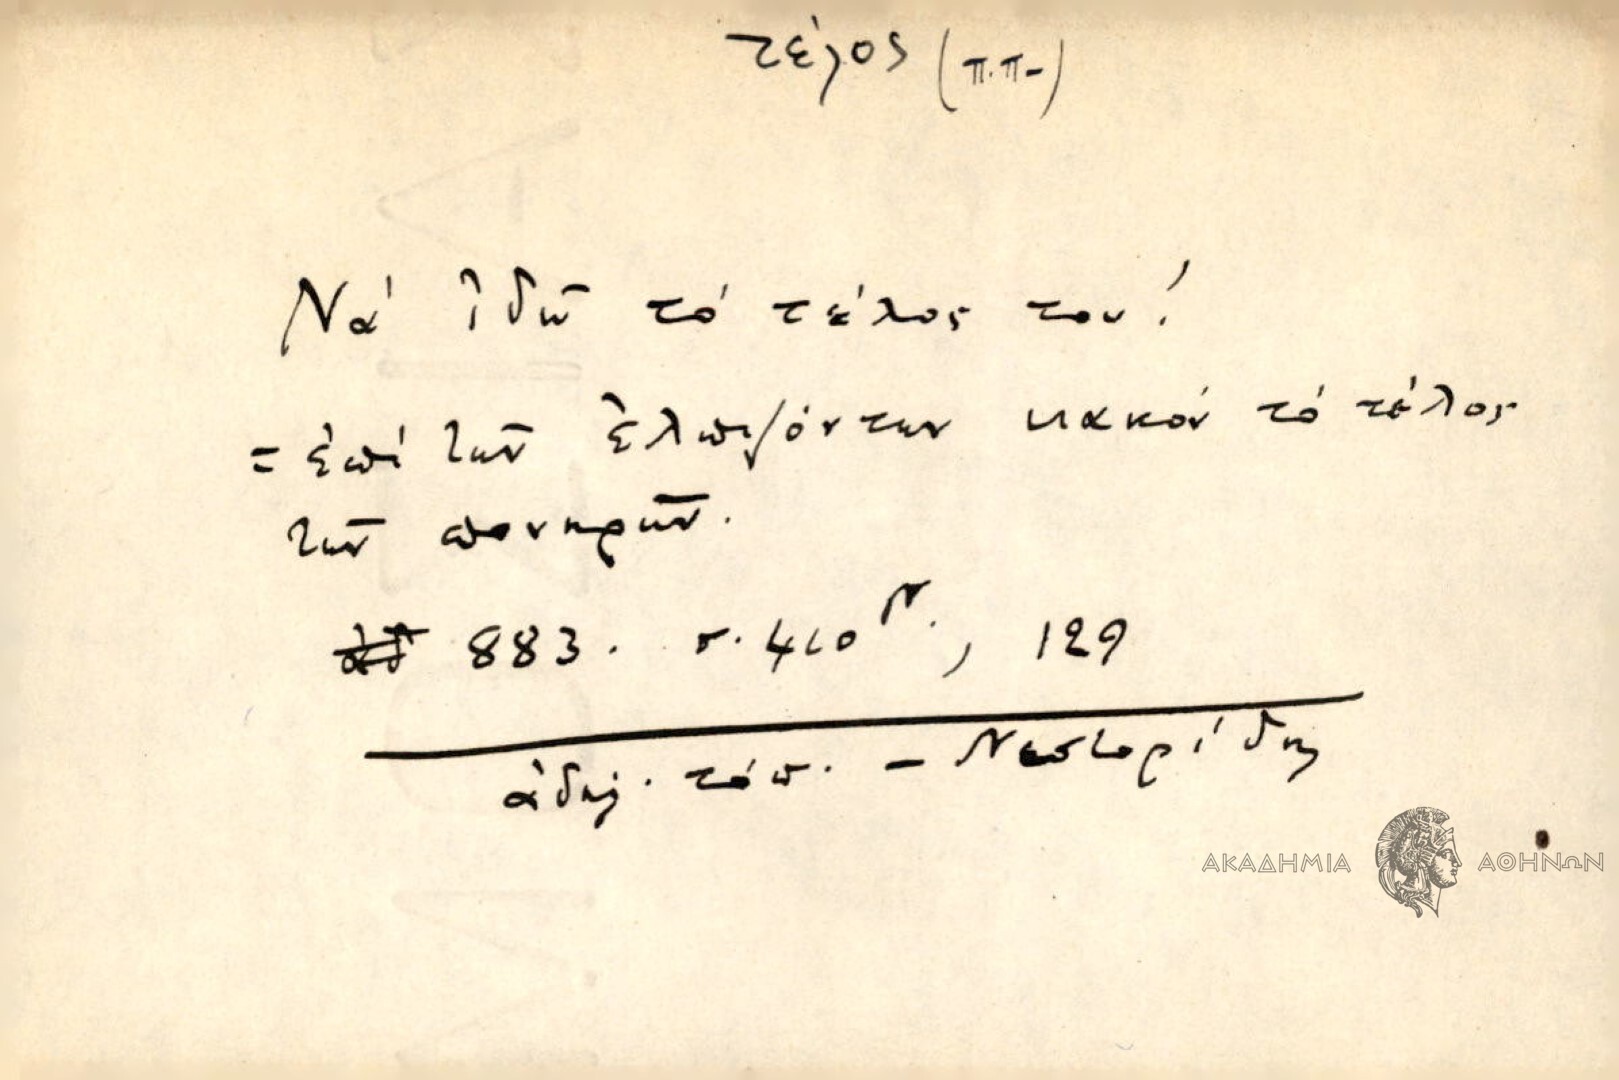 τέλος (π.π-)
Νά ἰδῶ τό τέλος του!
= ἐπί τῶν ἐλπιζόντων κακόν τό τέλος
τῶν πονηρῶν.
883. σ. 410, 129
ἀδήλ. τόπ. - Νεστορίδης
ΑΚΑΔΗΜΙΑ ΑΘΗΝΩΝ